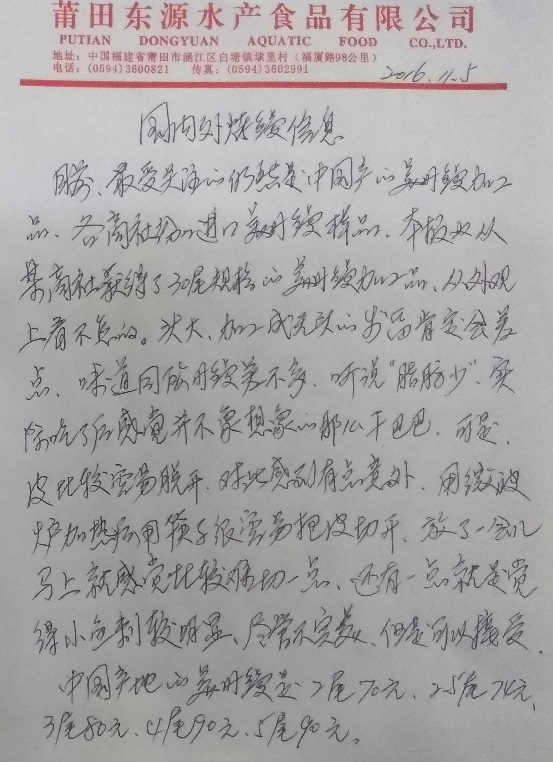 莆田东源水产食品有限公司
PUTIAN DONGYUAN AQUATIC FOOD CO.,LTD.
地址：中国福建省莆田市涵江区白塘镇埭里村（福厦路98公里）
电话：(0594)3600821 传真：(0594)3602991
2016.11.5
国内对烤鳗信息
目前、最受关注的仍然是中国产的美洲鳗加工
品、各商社均进口美洲鳗样品、本报也从
某商社获得了30尾规格的美洲鳗加工品、从外观
上看不怎的。头大、加工成无头的步留肯定会差
点、味道同欧洲鳗差不多、听说"脂肪少"、实
际吃了后感觉并不象想象的那么干巴巴、可是、
皮比较容易脱开、对此感到有点意外、用微波
炉加热后用筷子很容易把皮切开、放了一会儿
马上就感觉比较难切一点、还有一点就是觉
得小鱼刺较明显、尽管不完美、但是可以接受、
中国产地的美洲鳗是2尾70元、2.5尾74元、
3尾80元、4尾90元、5尾90元。